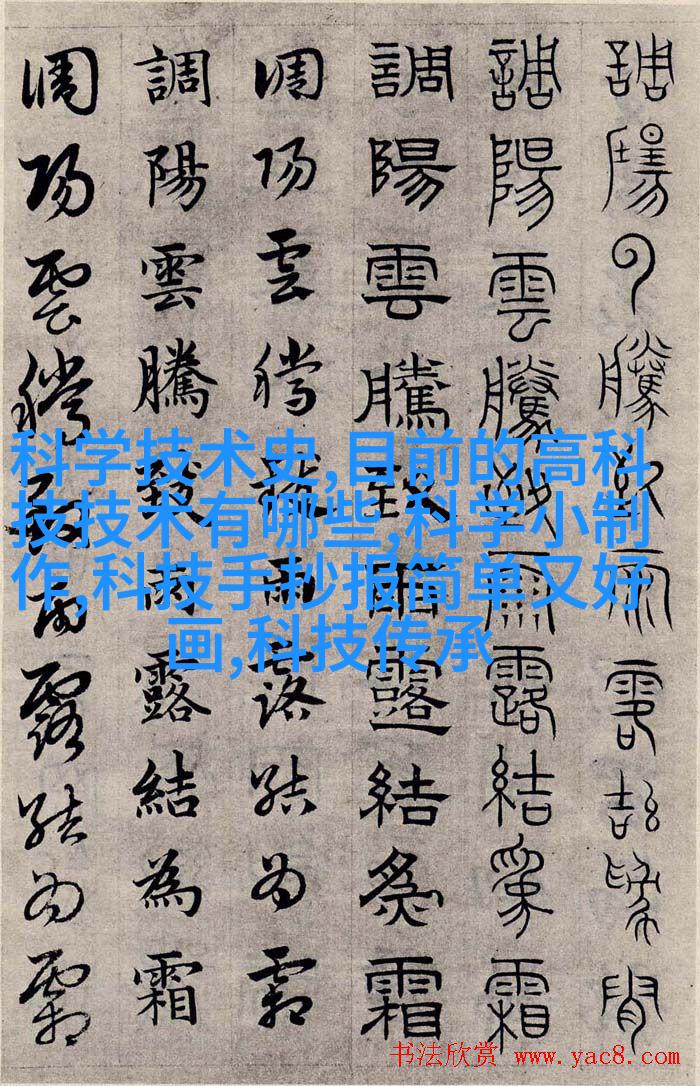 調陽雲騰致雨露結為霜
調陽雲騰致雨露結為霜
調陽雲騰致雨露結為霜
調陽雲騰致雨露結為霜
調陽雲騰致雨露結為霜
調陽雲騰致雨露結為霜
科学技术史,目前的高科
技技术有哪些,科学小制
作,科技手抄报简单又好
画,科技传承
书法欣赏 www.yac8.com